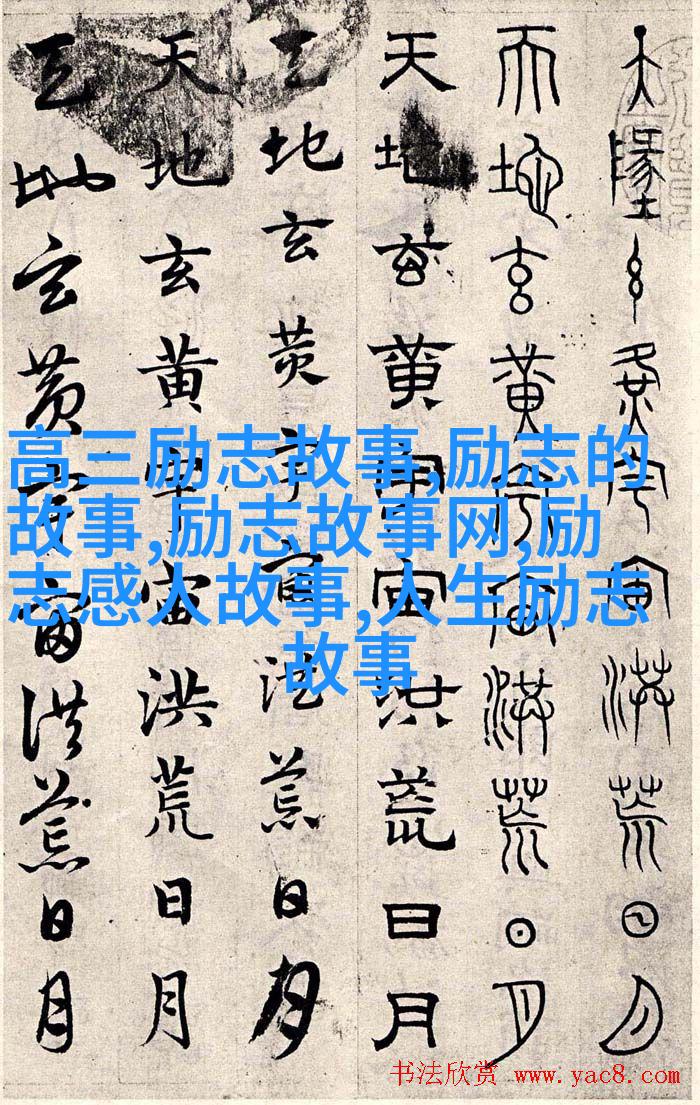 天墬玄黃宇宙洪荒日月
天地玄黃宇宙洪荒日月
天地玄黃宇宙洪荒日月
天地玄黃宇宙洪荒日月
天地玄黃宇宙洪荒日月
天地玄黃宇宙洪荒日月
高三励志故事,励志的
故事,励志故事网,励
志感人故事,人生励志
故事
书法欣赏 www.yac8.com